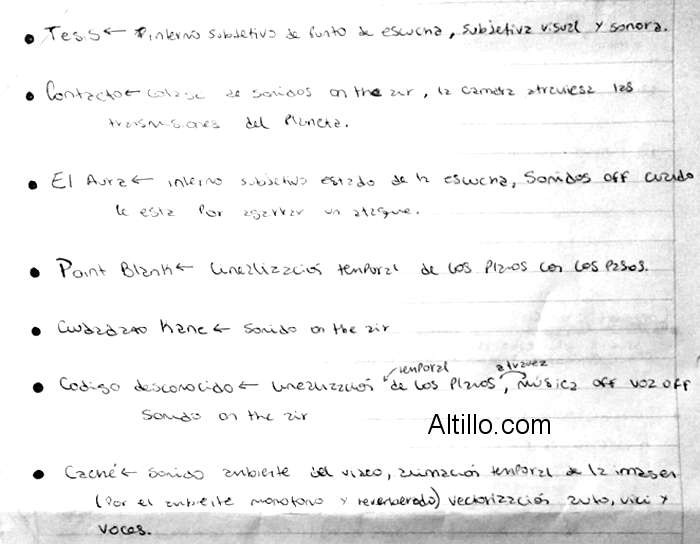 • Tesis ← Pinterno subjetivo de punto de escucha, subjetiva visual y sonora.
• Contacto ← colage de sonidos on the air, la camara atraviesa las
transmisiones del Planeta.
• El Aura ← interno subjetivo estado de la escucha, Sonidos off cuando
le esta por agarrar un ataque.
• Point Blank ← Linealización temporal de los Planos con los Pasos.
• Ciudadano Kane ← Sonido on the air
temporal a la vez
• Codigo desconocido ← Linealización de los Planos, música off voz off
Sonido on the air
Altillo.com
• Caché ← Sonido ambiente del video, animación temporal de la imagen
(Por el ambiente monotono y reverberado) vectorización auto, y
voces.